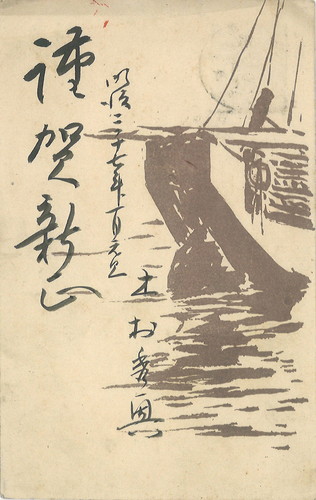 謹賀新正
明治三十七年一月元旦
木村秀興